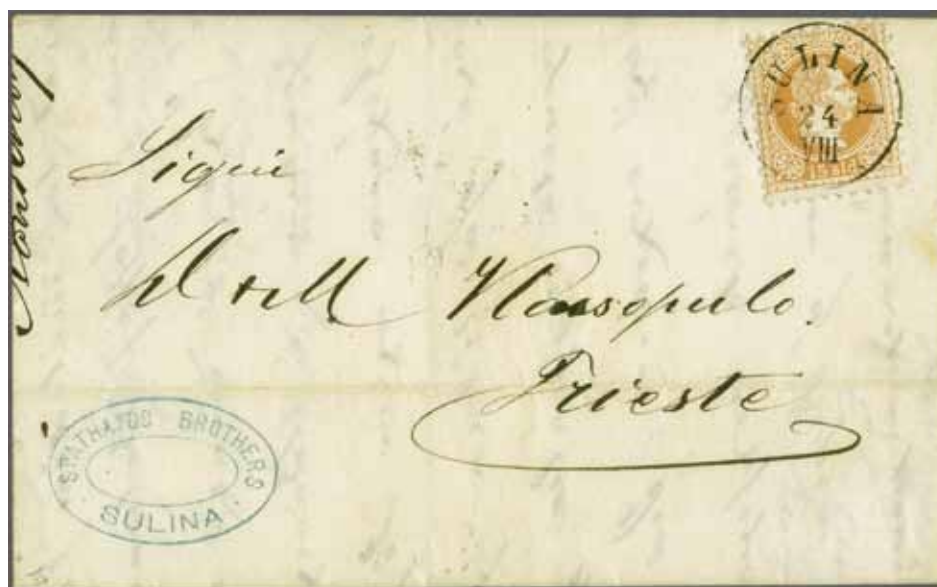 SULINA
24
VIII
15 sld.
Siguri
D & M Vlassopulo.
Trieste
STATHATOS BROTHERS
SULINA